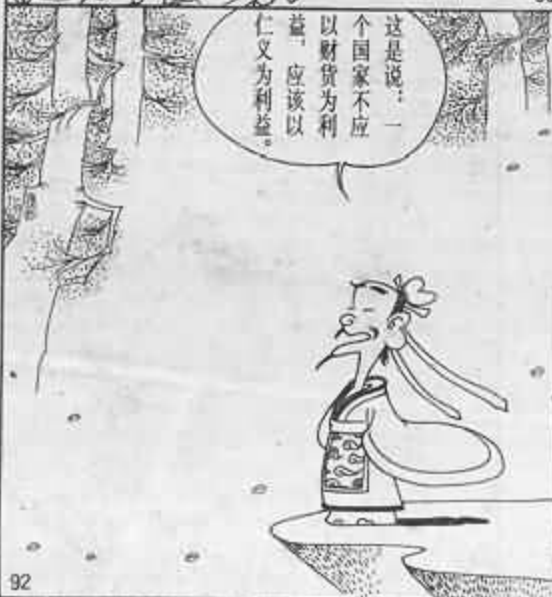 这是说：一
个国家不应
以财货为利
益，应该以
仁义为利益。
92